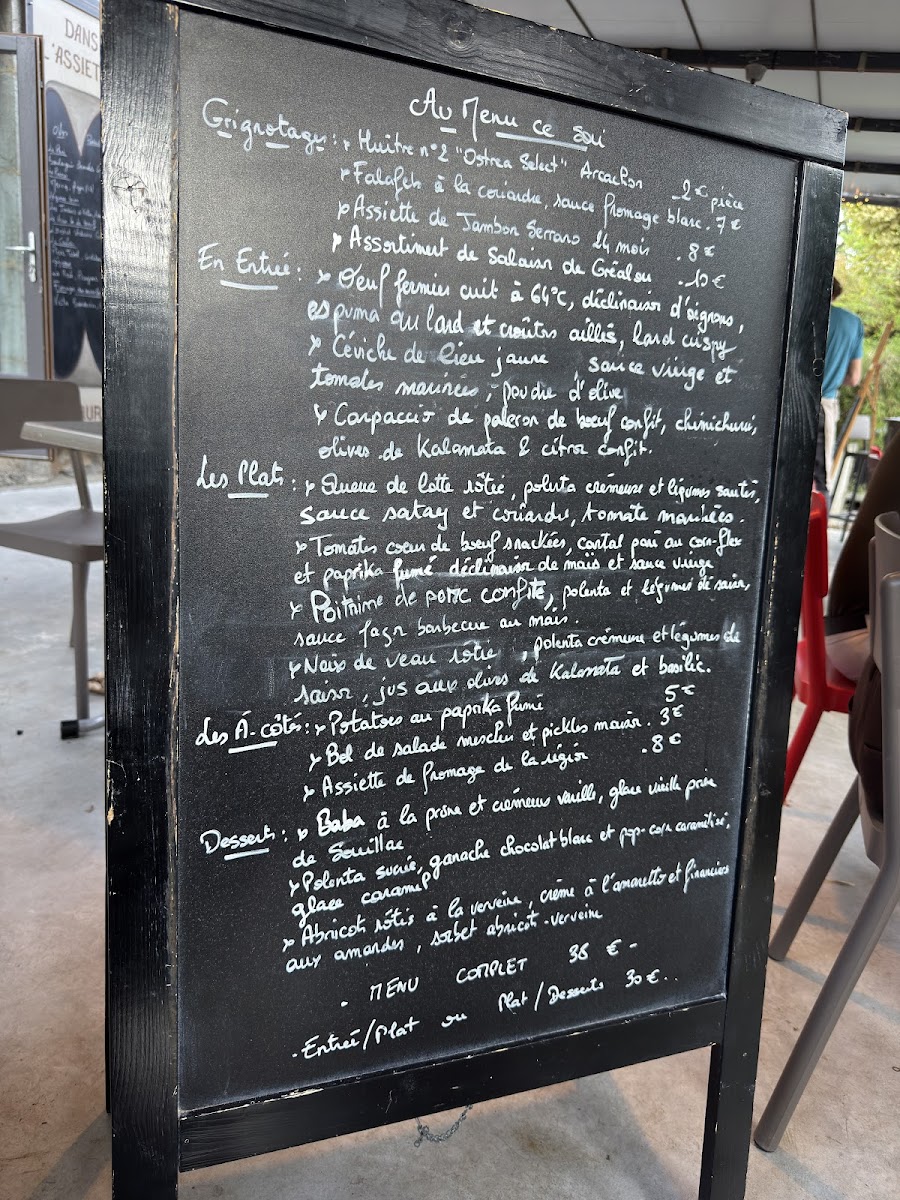 DANS
L'ASSIET
Au Menu ce soir
Grignotages : Huître n°2 "Ostrea Select" Arcachon 2€ pièce
Falafels à la coriandre, sauce fromage blanc. 7€
Assiette de Jambon Serrano 24 mois . 8€
Assortiment de Salaison de Gréalou . 10€
En Entrée : Oeuf fermier cuit à 64°C, déclinaison d'oignons,
espuma au lard et croûtons aillés, lard crispy
Céviche de lieu jaune , sauce vierge et
tomates marinées, poudre d'olive
Carpaccio de paleron de boeuf confit, chimichurri,
olives de Kalamata & citron confit.
Les Plats : Queue de lotte rôtie, polenta crémeuse et légumes sautés,
sauce satay et coriandre, tomate marinées.
Tomates coeur de boeuf snackées, cantal pané au corn-flex
et paprika fumé déclinaison de mais et sauce vierge
Poitrine de porc confite, polenta et légumes de saison,
sauce façon barbecue au maïs.
Noix de veau rôtie , polenta crémeuse et légumes de
saison, jus aux olives de Kalamata et basilic.
Les À-côtés : Potatoes au paprika fumé 5€
Bol de salade mesclun et pickles maison . 3€
Assiette de fromage de la région . 8€
Desserts : Baba à la prune et crémeux vanille, glace vieille prune
de Souillac
Polenta sucrée, ganache chocolat blanc et pop-corn caramélisé,
glace caramel
Abricots rôtis à la verveine, crème à l'amaretto et financiers
aux amandes, sorbet abricot-verveine
. MENU COMPLET 36 € -
. Entrée/Plat ou Plat/Desserts 30€..